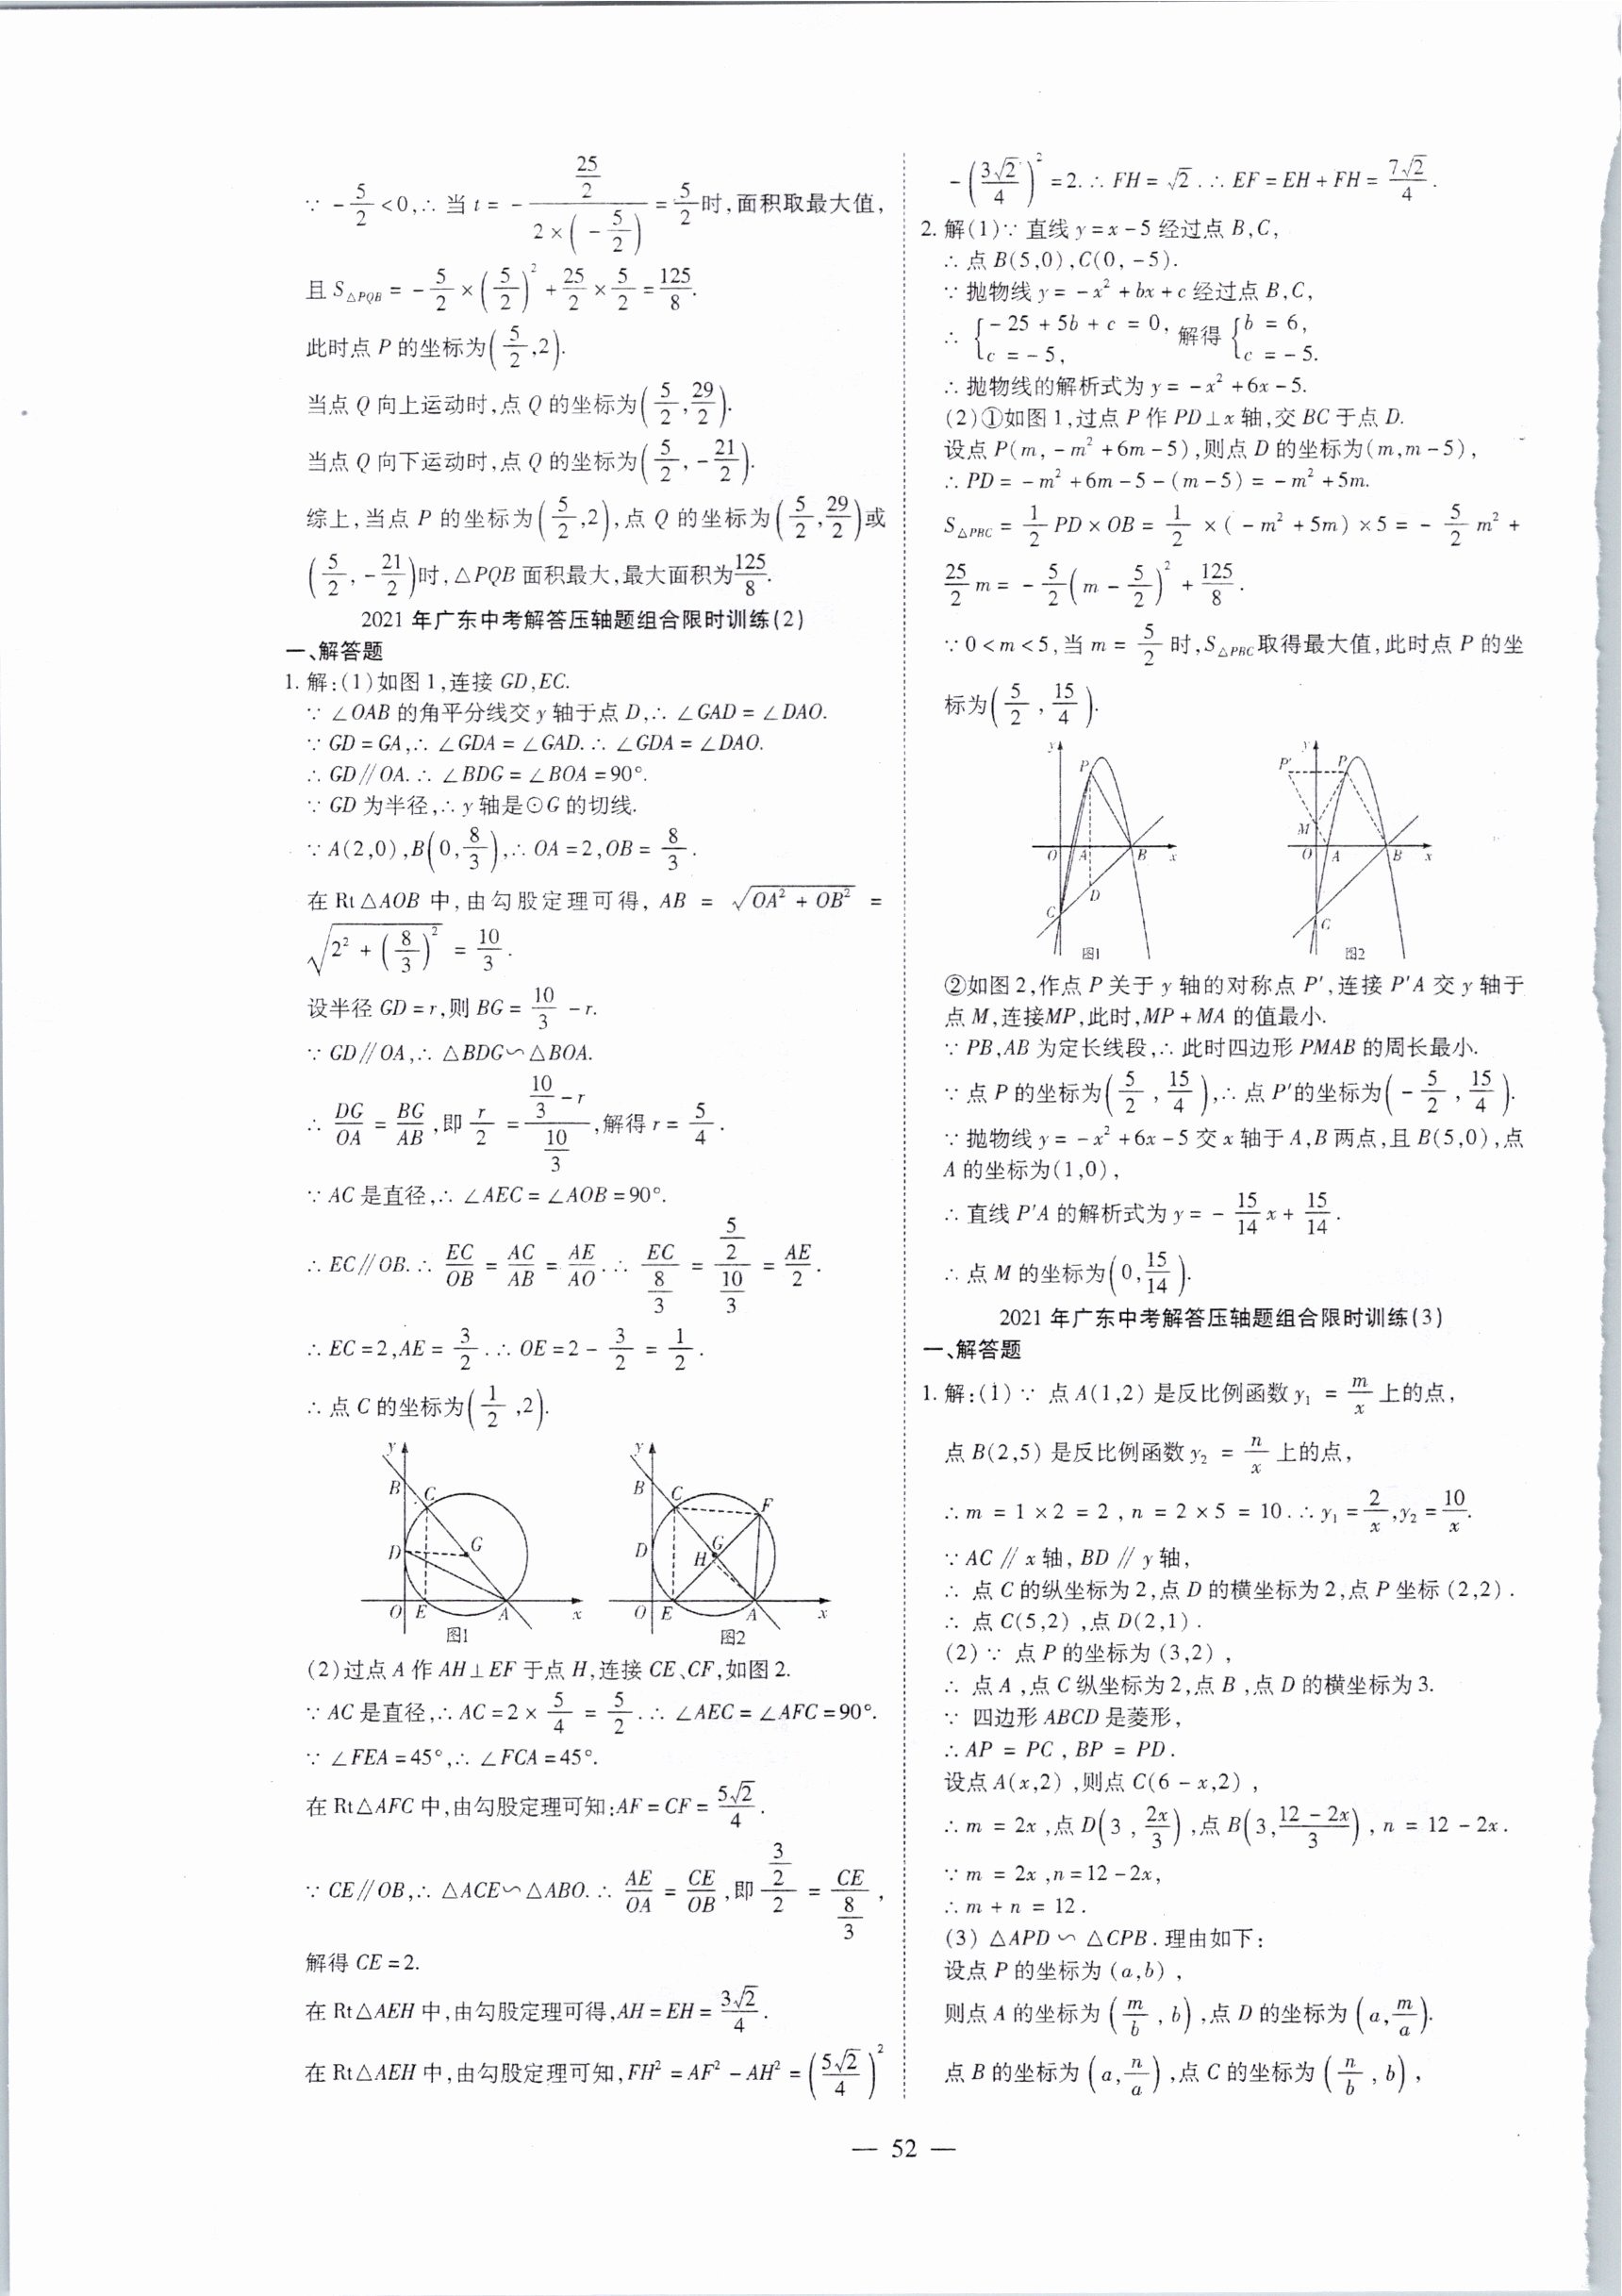 ∵ -5/2<0,∴ 当 t = -(25/2)/(2×(-5/2)) = 5/2时,面积取最大值,
且 S△PQB = -5/2×(5/2)²+25/2×5/2=125/8.
此时点 P 的坐标为(5/2,2).
当点 Q 向上运动时,点 Q 的坐标为(5/2,29/2).
当点 Q 向下运动时,点 Q 的坐标为(5/2,-21/2).
综上,当点 P 的坐标为(5/2,2),点 Q 的坐标为(5/2,29/2)或
(5/2,-21/2)时,△PQB 面积最大,最大面积为125/8.
2021 年广东中考解答压轴题组合限时训练(2)
一、解答题
1. 解:(1)如图 1,连接 GD,EC.
∵ ∠OAB 的角平分线交 y 轴于点 D,∴ ∠GAD = ∠DAO.
∵ GD = GA,∴ ∠GDA = ∠GAD. ∴ ∠GDA = ∠DAO.
∴ GD∥OA. ∴ ∠BDG = ∠BOA = 90°.
∵ GD 为半径,∴ y 轴是⊙G 的切线.
∵ A(2,0),B(0,8/3),∴ OA = 2,OB = 8/3.
在 Rt△AOB 中,由勾股定理可得, AB = √(OA² + OB²) =
√(2² + (8/3)²) = 10/3.
设半径 GD = r,则 BG = 10/3 - r.
∵ GD∥OA,∴ △BDG∽△BOA.
∴ DG/OA = BG/AB,即 r/2 = (10/3 - r)/(10/3),解得 r = 5/4.
∵ AC 是直径,∴ ∠AEC = ∠AOB = 90°.
∴ EC∥OB. ∴ EC/OB = AC/AB = AE/AO. ∴ EC/(8/3) = (5/2)/(10/3) = AE/2.
∴ EC = 2,AE = 3/2. ∴ OE = 2 - 3/2 = 1/2.
∴ 点 C 的坐标为(1/2,2).
y B C D G O E A x 图1
y B C F D H G O E A x 图2
(2)过点 A 作 AH⊥EF 于点 H,连接 CE、CF,如图 2.
∵ AC 是直径,∴ AC = 2×5/4 = 5/2. ∴ ∠AEC = ∠AFC = 90°.
∵ ∠FEA = 45°,∴ ∠FCA = 45°.
在 Rt△AFC 中,由勾股定理可知:AF = CF = 5√2/4.
∵ CE∥OB,∴ △ACE∽△ABO. ∴ AE/OA = CE/OB,即 (3/2)/2 = CE/(8/3),
解得 CE = 2.
在 Rt△AEH 中,由勾股定理可得,AH = EH = 3√2/4.
在 Rt△AEH 中,由勾股定理可知,FH² = AF² - AH² = (5√2/4)²
-(3√2/4)² = 2. ∴ FH = √2. ∴ EF = EH + FH = 7√2/4.
2. 解(1)∵ 直线 y = x - 5 经过点 B,C,
∴ 点 B(5,0),C(0,-5).
∵ 抛物线 y = -x² + bx + c 经过点 B,C,
∴ {-25 + 5b + c = 0, c = -5, 解得 {b = 6, c = -5.
∴ 抛物线的解析式为 y = -x² + 6x - 5.
(2)①如图 1,过点 P 作 PD⊥x 轴,交 BC 于点 D.
设点 P(m, -m² + 6m - 5),则点 D 的坐标为(m,m - 5),
∴ PD = -m² + 6m - 5 - (m - 5) = -m² + 5m.
S△PBC = 1/2 PD × OB = 1/2 × (-m² + 5m) × 5 = -5/2 m² +
25/2 m = -5/2(m - 5/2)² + 125/8.
∵ 0 < m < 5,当 m = 5/2 时,S△PBC取得最大值,此时点 P 的坐
标为(5/2,15/4).
y P O A B x D C 图1
y P′ P M O A B x C 图2
②如图 2,作点 P 关于 y 轴的对称点 P′,连接 P′A 交 y 轴于
点 M,连接MP,此时,MP + MA 的值最小.
∵ PB,AB 为定长线段,∴ 此时四边形 PMAB 的周长最小.
∵ 点 P 的坐标为(5/2,15/4),∴ 点 P′的坐标为(-5/2,15/4).
∵ 抛物线 y = -x² + 6x - 5 交 x 轴于 A,B 两点,且 B(5,0),点
A 的坐标为(1,0),
∴ 直线 P′A 的解析式为 y = -15/14 x + 15/14.
∴ 点 M 的坐标为(0,15/14).
2021 年广东中考解答压轴题组合限时训练(3)
一、解答题
1. 解:(1) ∵ 点 A(1,2) 是反比例函数 y₁ = m/x 上的点,
点 B(2,5) 是反比例函数 y₂ = n/x 上的点,
∴ m = 1×2 = 2 , n = 2×5 = 10. ∴ y₁ = 2/x,y₂ = 10/x.
∵ AC∥x 轴, BD∥y 轴,
∴ 点 C 的纵坐标为 2,点 D 的横坐标为 2,点 P 坐标 (2,2).
∴ 点 C(5,2) ,点 D(2,1).
(2) ∵ 点 P 的坐标为 (3,2) ,
∴ 点 A ,点 C 纵坐标为 2,点 B ,点 D 的横坐标为 3.
∵ 四边形 ABCD 是菱形,
∴ AP = PC , BP = PD.
设点 A(x,2) ,则点 C(6 - x,2) ,
∴ m = 2x ,点 D(3,2x/3) ,点 B(3,(12 - 2x)/3) , n = 12 - 2x.
∵ m = 2x ,n = 12 - 2x,
∴ m + n = 12.
(3) △APD ∽ △CPB. 理由如下:
设点 P 的坐标为 (a,b) ,
则点 A 的坐标为 (m/b,b) ,点 D 的坐标为 (a,m/a).
点 B 的坐标为 (a,n/a) ,点 C 的坐标为 (n/b,b) ,
— 52 —